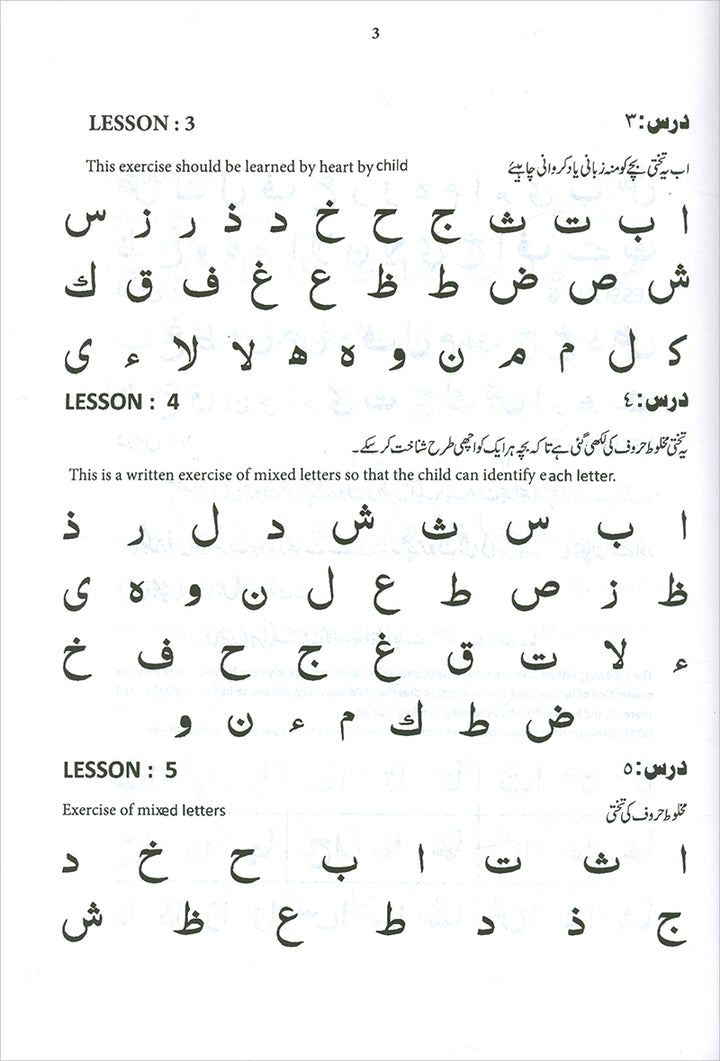 3
LESSON : 3 درس: ٣
This exercise should be learned by heart by child اب یہ تختی بچے کو منہ زبانی یاد کروانی چاہیئے
ا ب ت ث ج ح خ د ذ ر ز س
ش ص ض ط ظ ع غ ف ق ك
ک ل م م ن و ه ھ لا لا ء ى
LESSON : 4 درس: ٤
یہ تختی مخلوط حروف کی لکھی گئی ہے تاکہ بچہ ہر ایک کو اچھی طرح شناخت کر سکے۔
This is a written exercise of mixed letters so that the child can identify each letter.
ا ب س ث ش د ل ر ذ
ظ ز ص ط ع ل ن و ه ى
ء لا ت ق غ ج ح ف خ
ض ط ك م ء ن و
LESSON : 5 درس: ٥
Exercise of mixed letters مخلوط حروف کی تختی
ا ث ت ا ب ح خ د
ج ذ د ط ع ظ ش